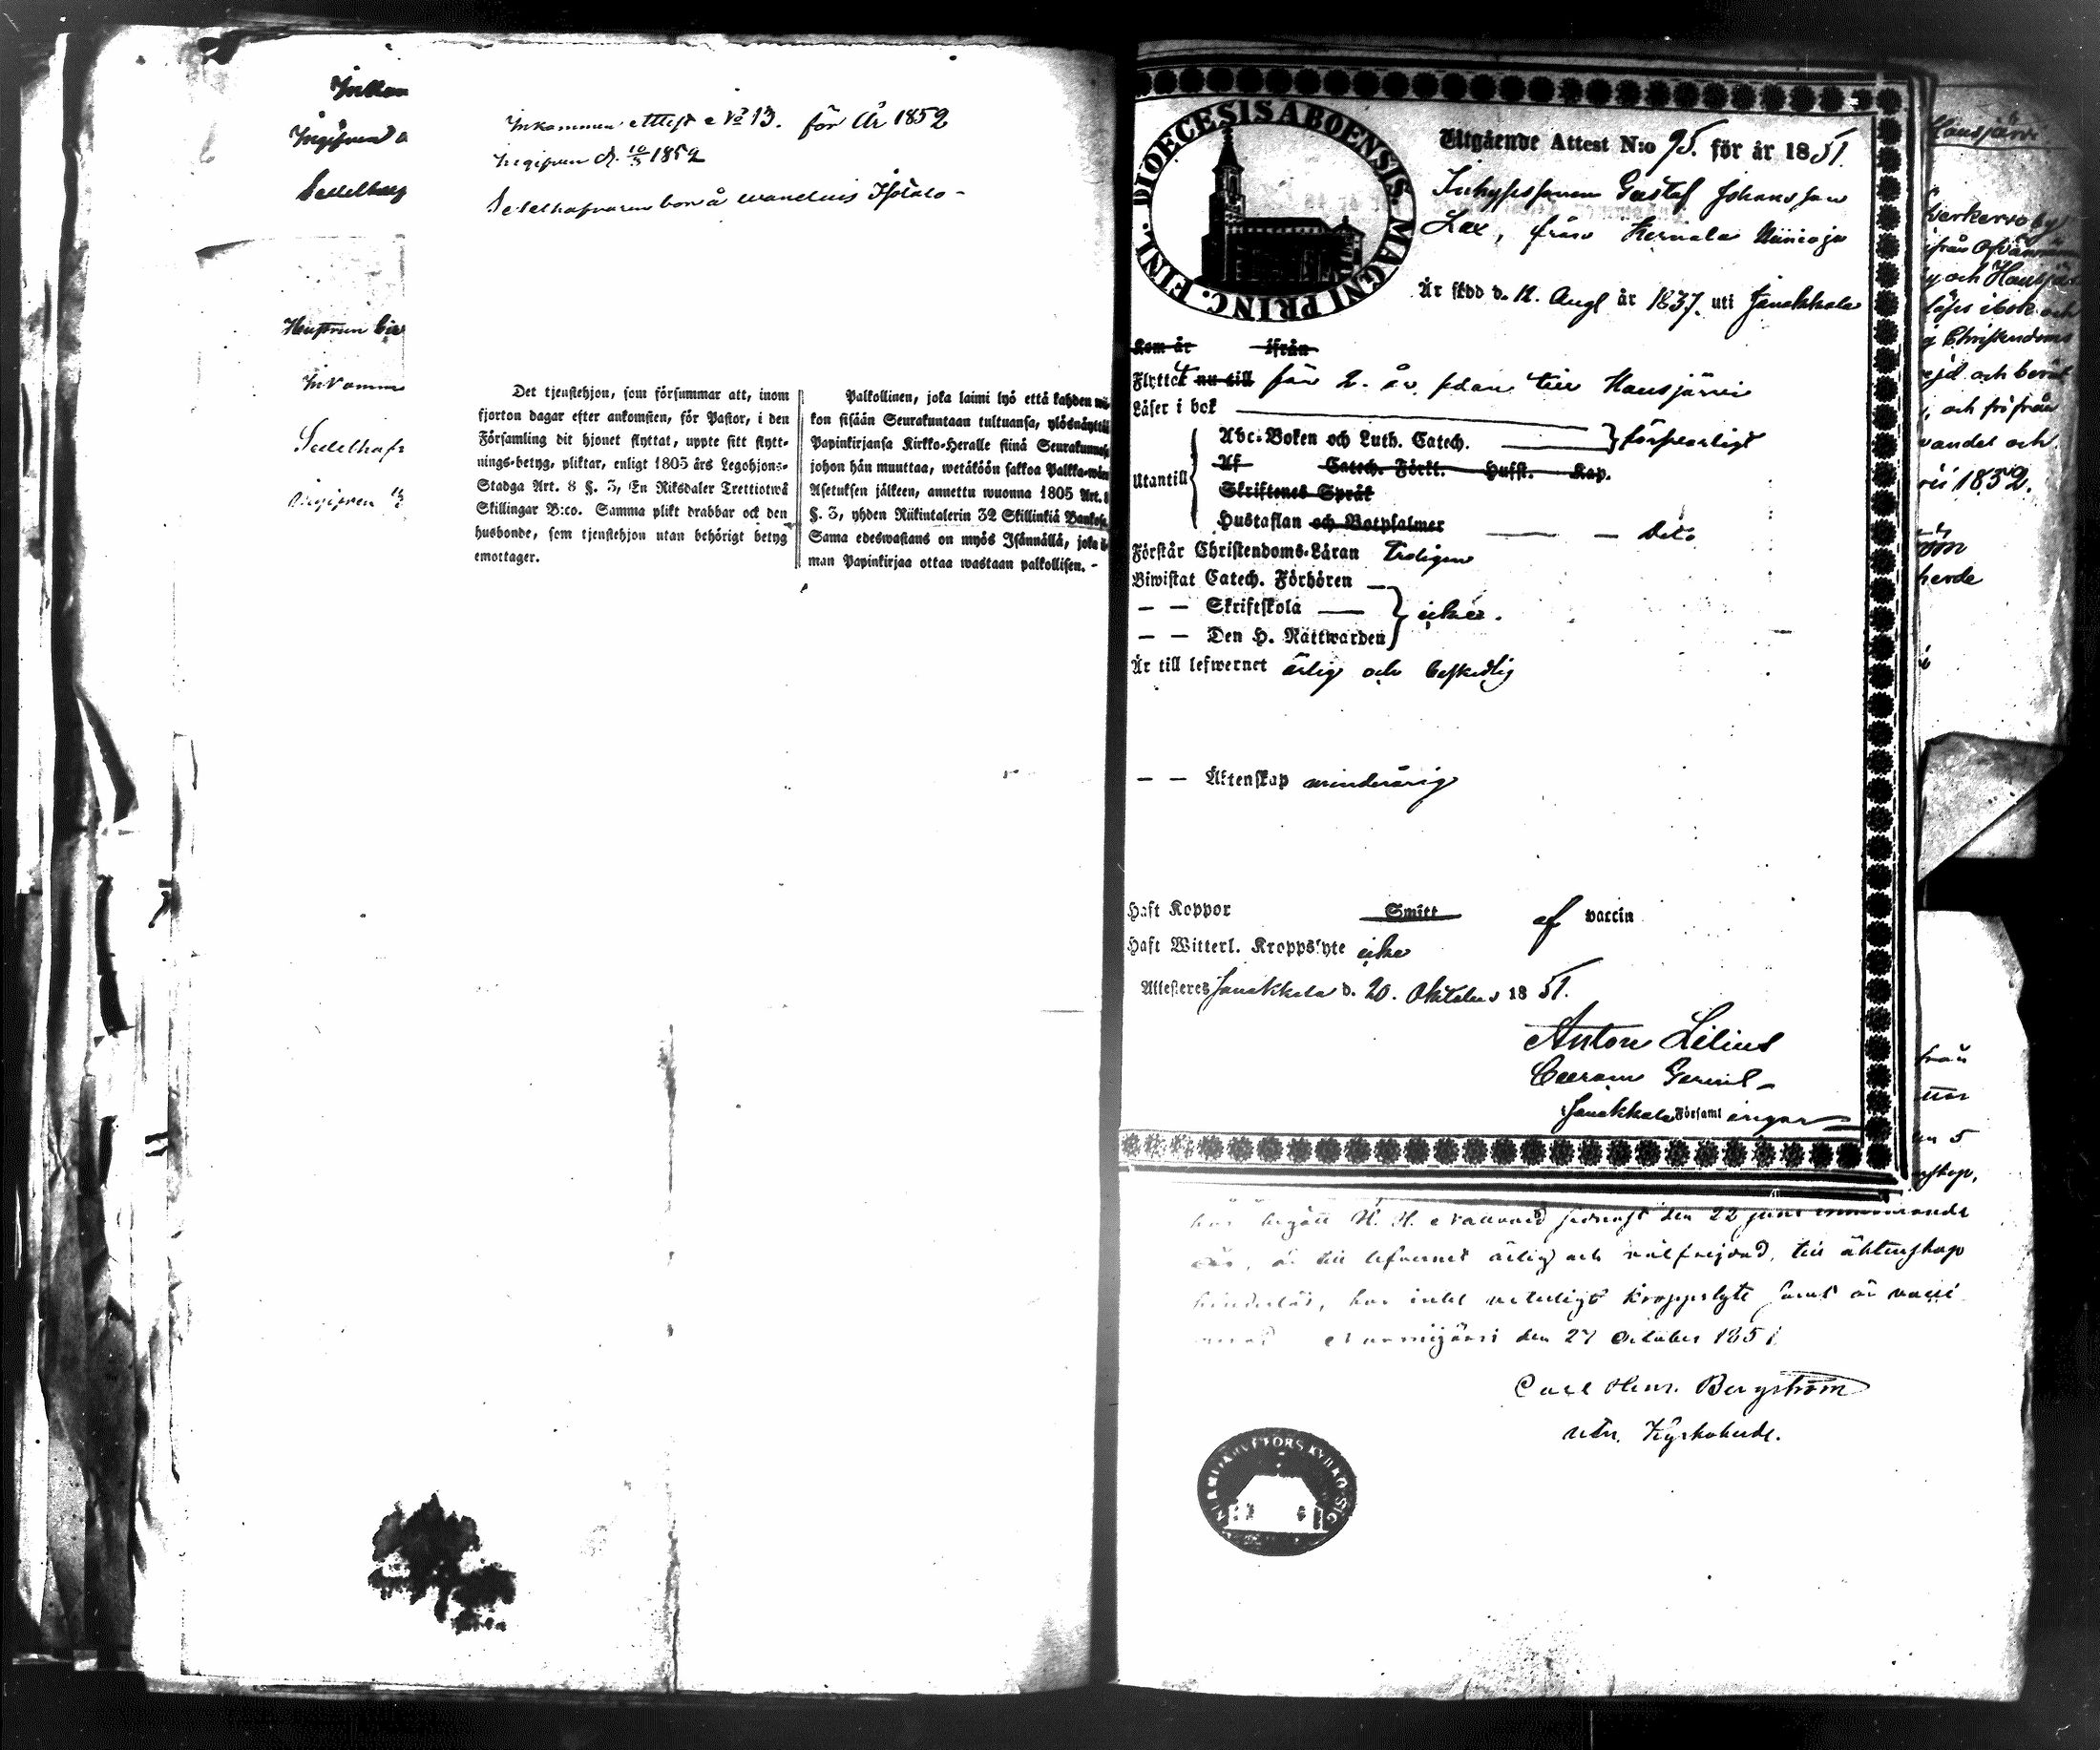 Inkom
Ingifven
Sedelhaf
Inkommen Attest No 13. för År 1852
Ingifven d. 10/3 1852
Sedelhafvaren bor å
Hustrun
Inkomm
Sedelhafv
Ingifven
Det tjenstehjon, som försummar att, inom
fjorton dagar efter ankomsten, för Pastor, i den
Församling dit hjonet flyttat, uppte sitt flytt-
nings-betyg, pliktar, enligt 1805 års Legohjons-
Stadga Art. 8 §. 3, En Riksdaler Trettiotwå
Skillingar B:co. Samma plikt drabbar ock den
husbonde, som tjenstehjon utan behörigt betyg
emottager.
Palkollinen, joka laimi lyö että kahden wii-
kon sisään Seurakuntaan tultuansa, ylösnäyttää
Papinkirjansa Kirkko-Heralle siinä Seurakunnasa
johon hän muuttaa, wetäköön sakkoa Palkka-wäen
Asetuksen jälkeen, annettu wuonna 1805 Art. 8
§. 3, yhden Riikintalerin 32 Skillinkiä Bankosa
Sama edeswastaus on myös Isännällä, joka il-
man Papinkirjaa ottaa wastaan palkollisen. -
DIOECESIS ABOENSIS. MAGNI PRINC. FINL.
Utgående Attest N:o 95. för år 1851.
Inhyssonen Gustaf Johansson
Lax, från Kernala
Är född d. 12. Aug år 1837. uti Janakkala
Kom år ifrån
Flyttat nu till för 2. år sdan till Hausjärvi
Läser i bok
Abc-Boken och Luth. Catech. försvarligt
Utantill
Af Catech. Förkl. Hufst. Kap.
Skriftenes Språk
Hustaflan och Botpsalmer Dito
Förstår Christendoms-Läran Troligen
Biwistat Catech. Förhören
— — Skriftskola icke.
— — Den H. Nattwarden
Är till lefwernet ärlig och beskedlig
— — Äktenskap minderårig
Haft Koppor Smitt af vaccin
Haft Witterl. Kroppslyte icke
Attesteras Janakkala d. 20. Oktober 1851.
Anton Lilius
Janakkala Församlingar
har begått H. H. Nattvard senast den 22 juni innevarande
år, är till lefvernet ärlig och välfrejdad, till äktenskap
hinderlös, har intet veterligt kroppslyte samt är vacci
nerad Nurmijärvi den 27 October 1851
Carl Henr. Bergström
vdn. Kyrkoherde.
Hausjärvi
och Hausjär
läser i bok och
Christendoms
och beröm
och fri från
vandel och
1852.
herde
från